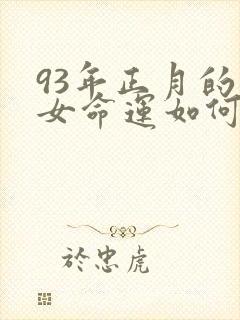 93年正月的
女命運如何
於忠虎